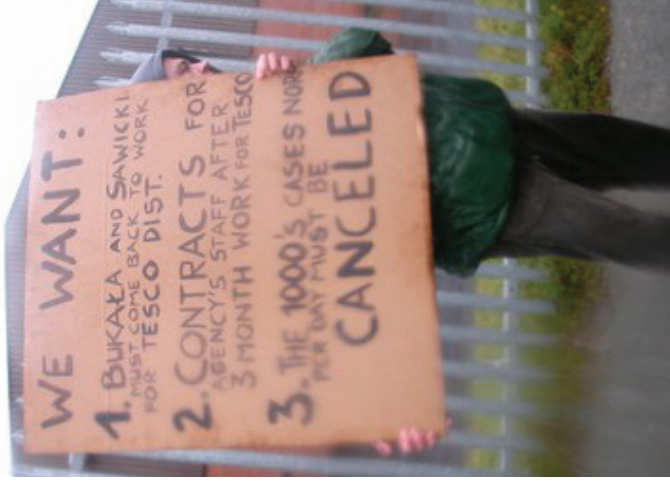 WE WANT:
1. BUKAŁA AND SAWICKI
MUST COME BACK TO WORK
FOR TESCO DIST.
2. CONTRACTS FOR
AGENCY'S STAFF AFTER
3 MONTH WORK FOR TESCO
3. THE 1000'S CASES NOR
PER DAY MUST BE
CANCELED